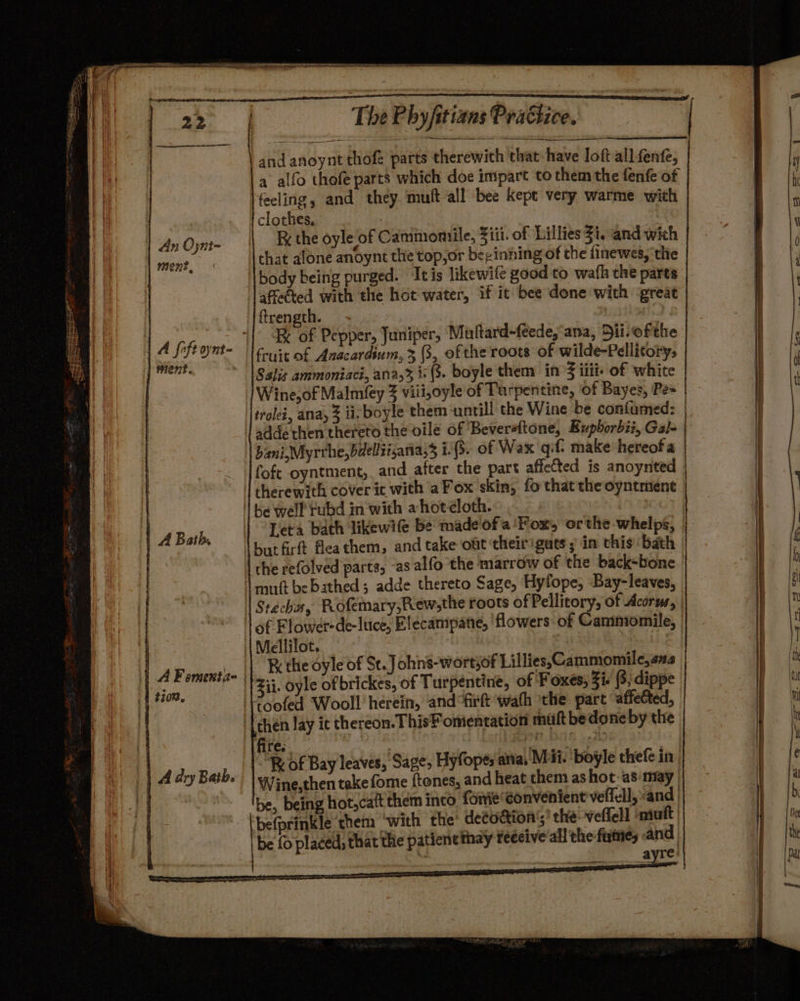 22
The Phyſitians Practice.
and anoynt thoſe parts therewith that have loſt all ſenſe,
a alſo thoſe parts which doe impart to them the ſenſe of
feeling, and they muſt all bee kept very warme with
clothes.
An Oynt-
ment.
℞ the oyle of Cammomile, ℥iii. of Lillies ℥i. and with
that alone anoynt the top, or beginning of the ſinewes, the
body being purged. It is likewiſe good to waſh the parts
affected with the hot water, if it bee done with great
ſtrength.
A ſoft oynt-
ment.
℞ of Pepper, Juniper, Muſtard-ſeede, ana, ℈ii. of the
fruit of Anacardium, ʒ ß, of the roots of wilde-Pellitory,
Salis ammoniaci, ana, ʒ i. ß. boyle them in ℥ iiii. of white
Wine, of Malmſey ℥ viii, oyle of Turpentine, of Bayes, Pe-
trolei, ana, ℥ ii. boyle them untill the Wine be conſumed:
adde then thereto the oile of Beverſtone, Euphorbii, Gal-
bani, Myrrhe, bdellii, ana, ʒ i. ß. of Wax q.ſ. make hereof a
ſoft oyntment, and after the part affected is anoynted
therewith cover it with a Fox skin, ſo that the oyntment
be well rubd in with a hot cloth.
A Bath.
Let a bath likewiſe be made of a Fox, or the whelps,
but firſt flea them, and take out their guts; in this bath
the reſolved parts, as alſo the marrow of the back-bone
muſt be bathed; adde thereto Sage, Hyſope, Bay-leaves,
Stechas, Roſemary, Rew, the roots of Pellitory, of Acorus,
of Flower-de-luce, Elecampane, flowers of Cammomile,
Mellilot.
A Fomenta-
tion.
℞ the oyle of St. Johns-wort, of Lillies, Cammomile, ana
℥ii. oyle of brickes, of Turpentine, of Foxes, ℥i. ß, dippe
tooſed Wooll herein, and firſt waſh the part affected,
then lay it thereon. This Fomentation muſt be done by the
fire.
A dry Bath.
℞ of Bay leaves, Sage, Hyſope, ana, M ii. boyle theſe in
Wine, then take ſome ſtones, and heat them as hot as may
be, being hot, caſt them into ſome convenient veſſell, and
beſprinkle them with the decoction; the veſſell muſt
be ſo placed, that the patient may receive all the fumes and
ayre